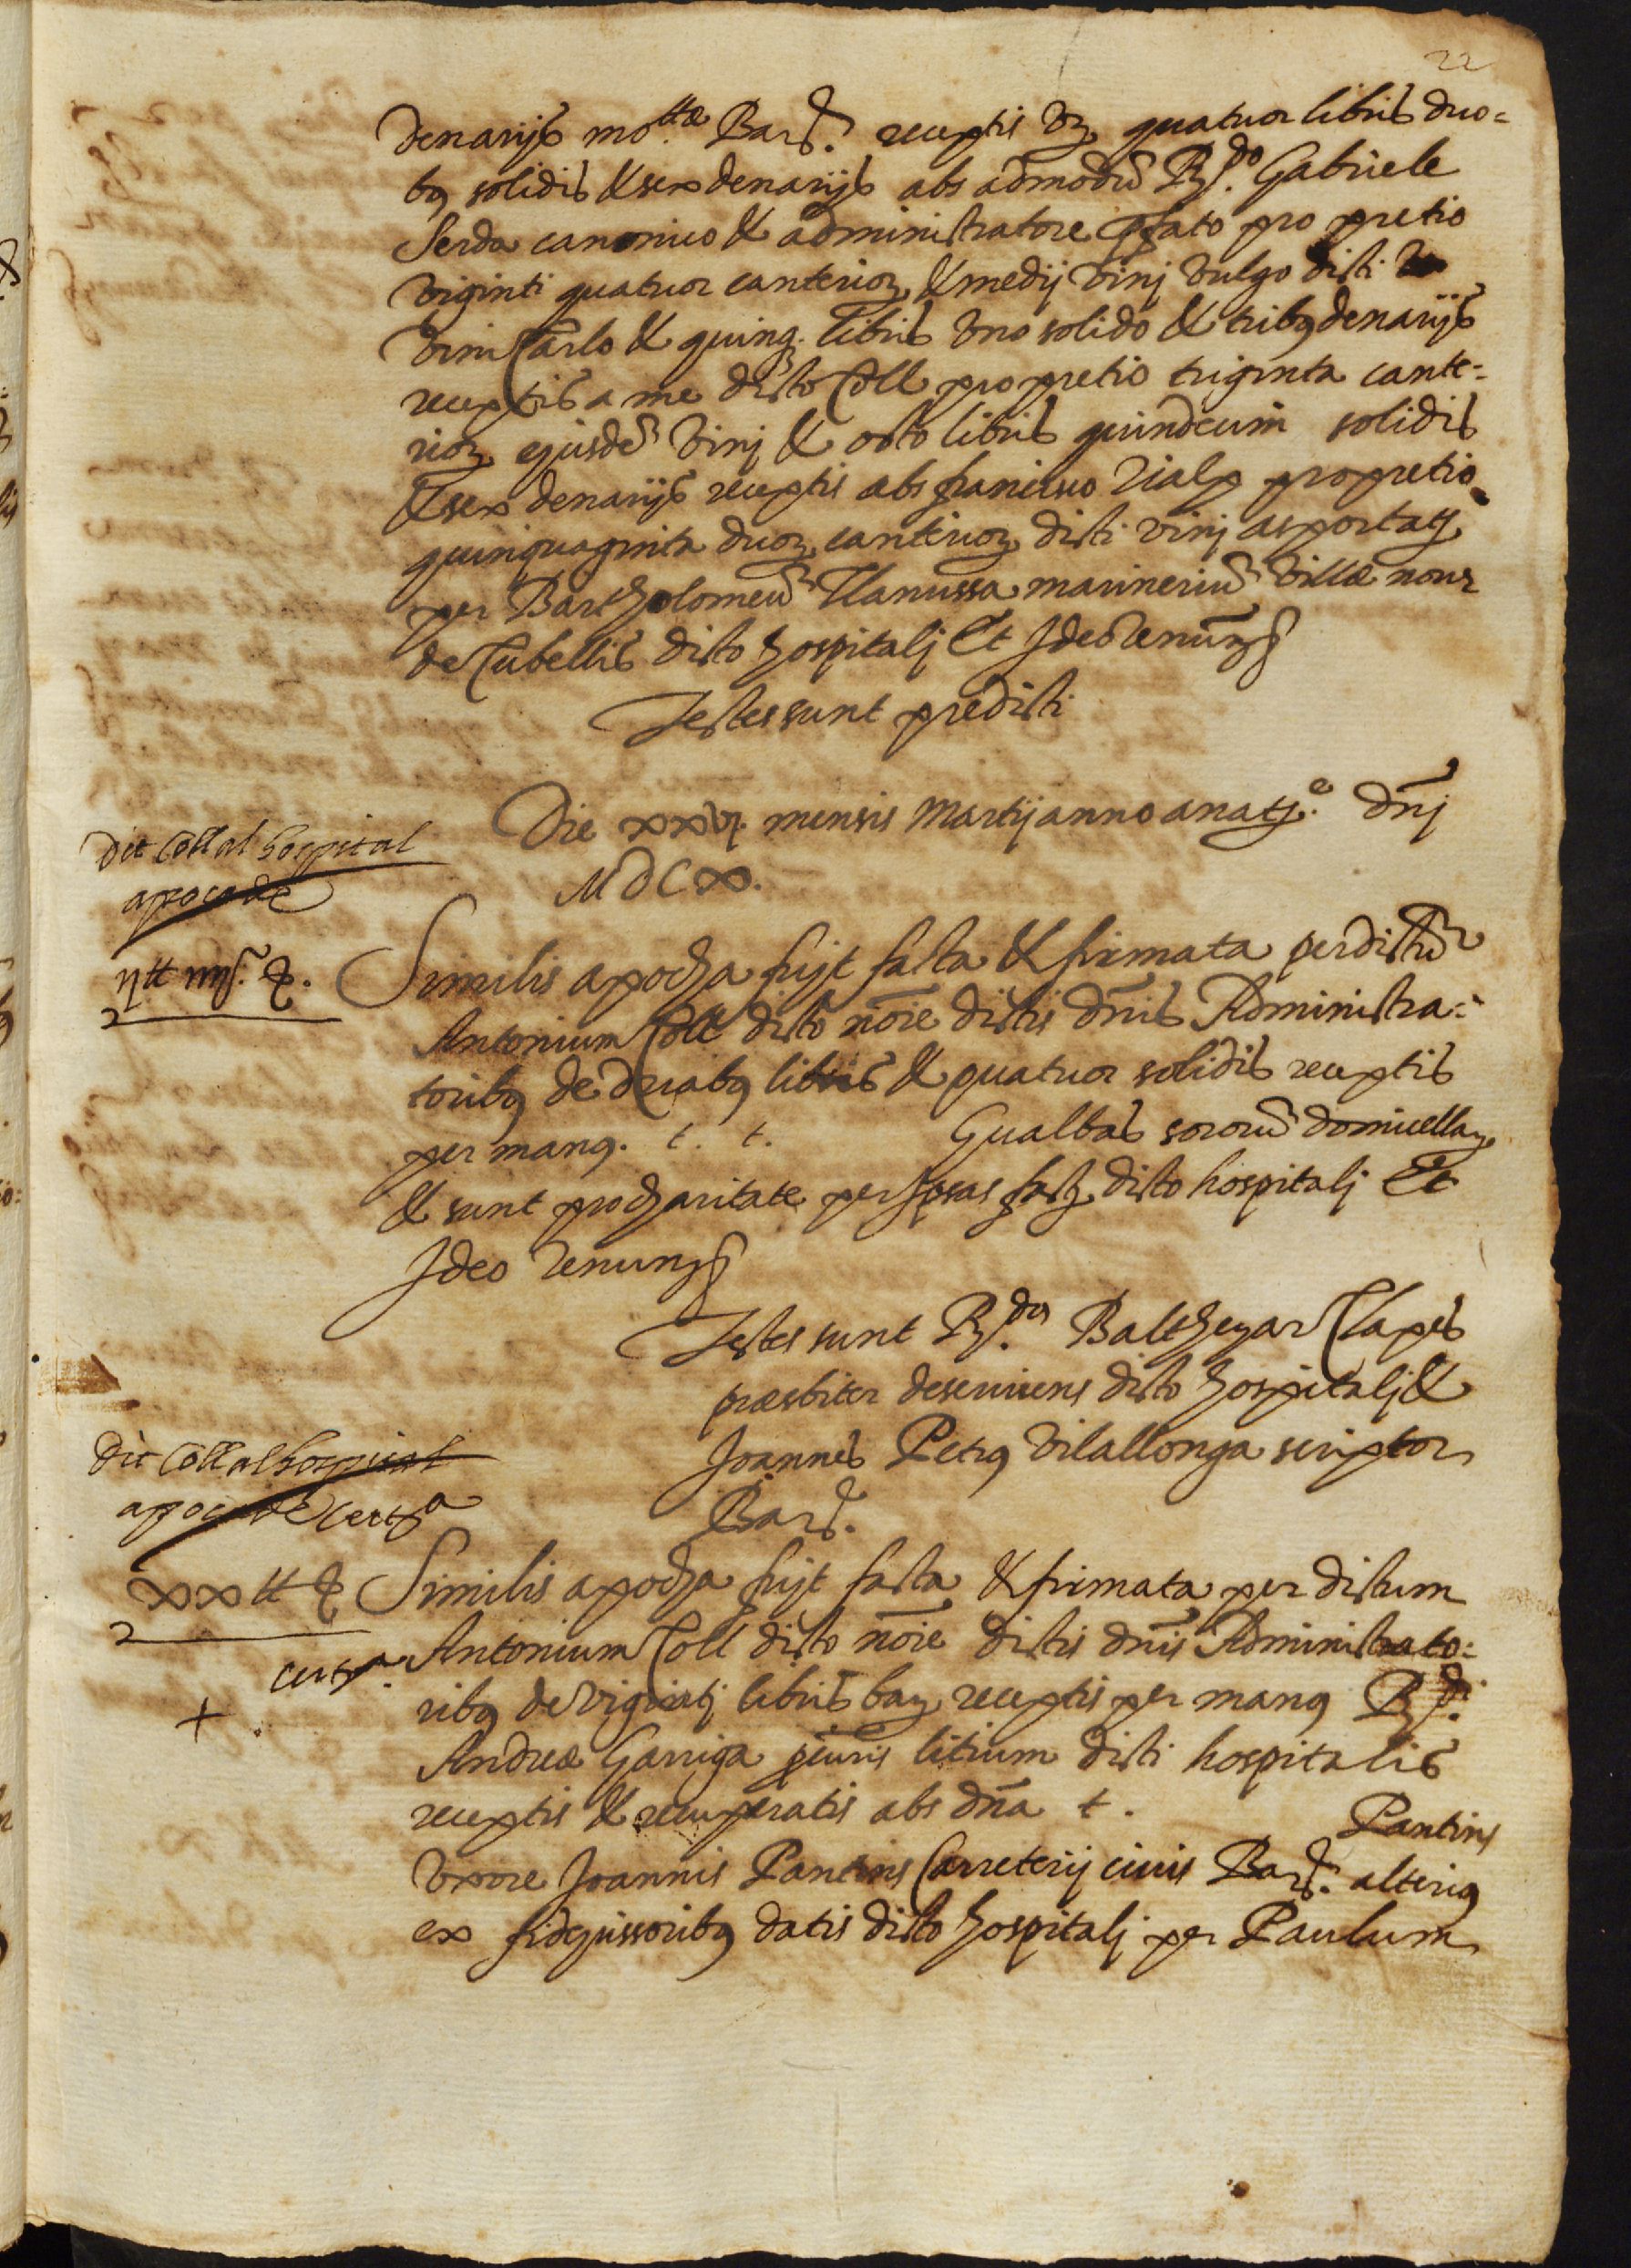 22
denarijs mo.tæ Bar. receptis vz quatuor libris duo=
bq solidis & sex denarijs abs admodũ R.do Gabriele
Serda canonico & administratore pfato pro pretio
viginti quatuor canterioz & medij vinj vulgo dicti
vini Carlo & quinq. libris vno solido & tribq denarijs
receptis a me dicto Coll pro pretio triginta cante=
rioz ejusdẽ vinj & octo libris quindecim solidis
& sex denarijs receptis abs francisco Rialp pro pretio
quinquaginta duoz canterioz dicti vinj asportatj
per Bartholomeũ Llanussa marineriũ villæ nouæ
de Cubellis dicto hospitalj Et Ideo renun
Testes sunt predicti
Die xxvj. mensis Martij anno a natte. dnj
MDCx.
dit Coll al hospital
apoca de
ij ll iiij s.
Similis apocha fujt facta & firmata per dictũ
Antonium Coll dicto noïe dictis dnis Administra=
toribq de duabq libris & quatuor solidis receptis
per manq. t. t. Gualbas sororũ domicellaz
& sunt pro charitate per ipsas factz dicto hospitalj Et
Ideo renun
Testes sunt R.dus Balthezar Clapes
præsbiter deseruiens dicto hospitalj &
Joannes Petrq Vilallonga scriptor
Bar.
dit Coll al hospital
apoca de certa
xx ll
certa.
+
Similis apocha fujt facta & firmata per dictum
Antonium Coll dicto noïe dictis dnis Administrato=
ribq de vigintj libris baz receptis per manq R.di
Andreæ Garriga pcuris litium dicti hospitalis
receptis & recuperatis abs dña t. Pantins
vxore Joannis Pantins Carreterij ciuis Bar. alteriq
ex fidejussoribq datis dicto hospitalj per Paulum